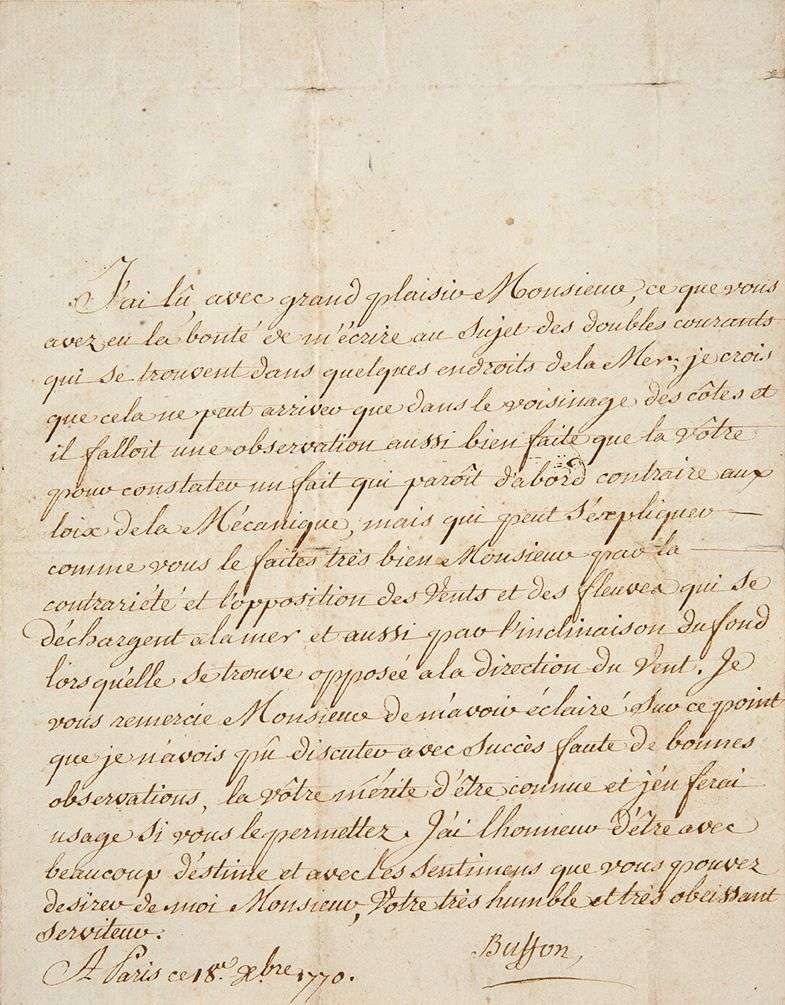 J'ai lû avec grand plaisir Monsieur, ce que vous
avez eu la bonté de m'écrire au sujet des doubles courants
qui se trouvent dans quelques endroits de la Mer; je crois
que cela ne peut arriver que dans le voisinage des côtes et
il falloit une observation aussi bien faite que la vôtre
pour constater un fait qui paroît d'abord contraire aux
loix de la Mécanique, mais qui peut s'expliquer
comme vous le faites très bien Monsieur par la
contrariété et l'opposition des Vents et des fleuves qui se
déchargent a la mer et aussi par l'inclinaison du fond
lorsqu'elle se trouve opposée a la direction du Vent. Je
vous remercie Monsieur de m'avoir éclairé sur ce point
que je n'avois pû discuter avec succès faute de bonnes
observations, la vôtre mérite d'être connue et j'en ferai
usage si vous le permettez. J'ai l'honneur d'être avec
beaucoup d'estime et avec les sentimens que vous pouvez
desirer de moi Monsieur, Votre très humble et très obeissant
serviteur.
Buffon,
A Paris ce 18.e Xbre 1770.